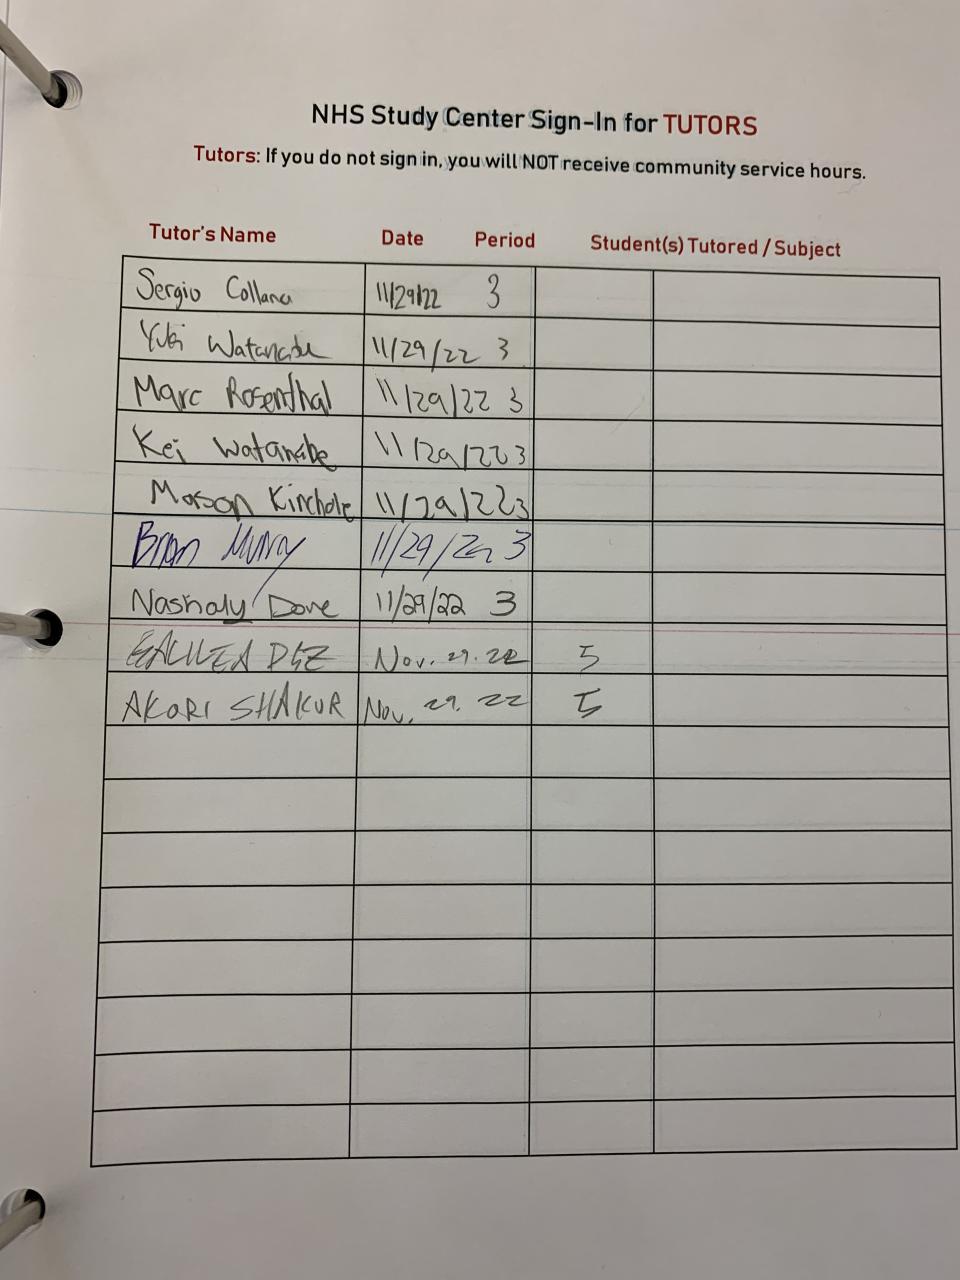 NHS Study Center Sign-In for TUTORS
Tutors: If you do not sign in, you will NOT receive community service hours.
Tutor's Name Date Period Student(s) Tutored / Subject
Sergio Collana 11/29/22 3
Yuki Watanabe 11/29/22 3
Marc Rosenthal 11/29/22 3
Kei Watanabe 11/29/22 3
Mason 11/29/22 3
11/29/22 3
Nashaly Dove 11/29/22 3
Nov. 29. 22 5
AKORI SHAKUR Nov. 29. 22 5